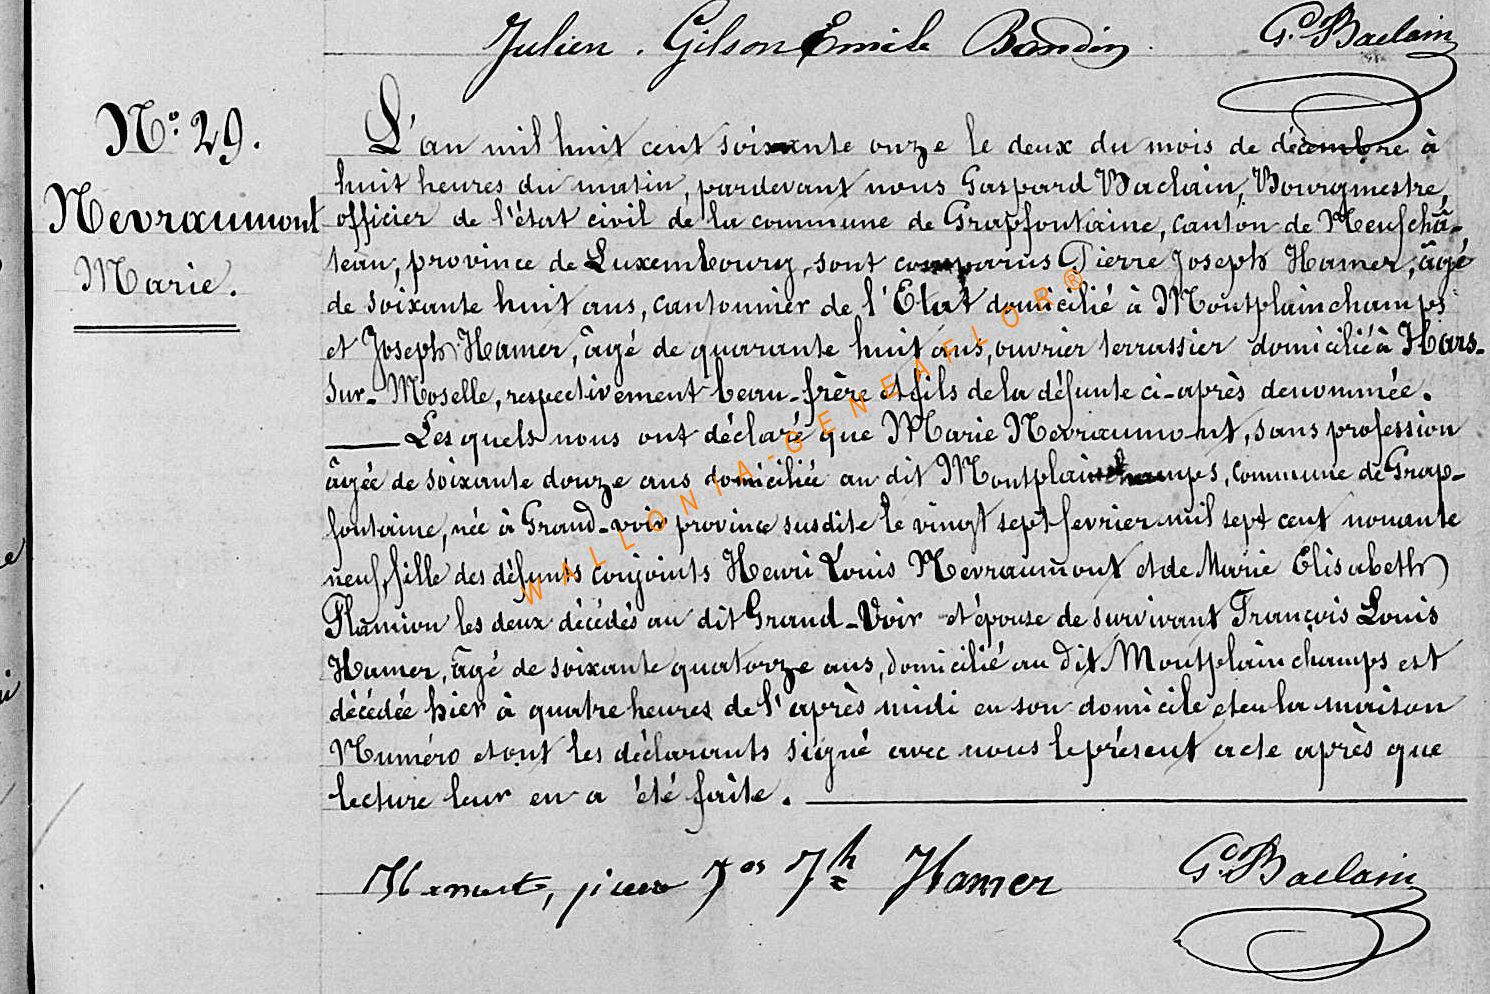 Julien. Gilson Emile Baudin. G. Baclain
N° 29.
Nevraumont
Marie.
L'an mil huit cent soixante onze le deux du mois de décembre à
huit heures du matin, pardevant nous Gaspard Baclain, Bourgmestre,
officier de l'état civil de la commune de Grapfontaine, canton de Neufchâ-
teau, province de Luxembourg, sont comparus Pierre Joseph Hamer, âgé
de soixante huit ans, cantonnier de l'Etat domicilié à Montplainchamps
et Joseph Hamer, âgé de quarante huit ans, ouvrier terrassier domicilié à Hars-
sur-Moselle, respectivement beau-frère et fils de la défunte ci-après denommée.
Les quels nous ont déclaré que Marie Nevraumont, sans profession
âgée de soixante douze ans domiciliée au dit Montplainchamps, commune de Grap-
fontaine, née à Grand-voir province susdite le vingt sept fevrier mil sept cent nonante
neuf, fille des défunts conjoints Henri Louis Nevraumont et de Marie Elisabeth
Plamion les deux décédés au dit Grand-Voir et épouse de survivant François Louis
Hamer, âgé de soixante quatorze ans, domicilié au dit Montplainchamps est
décédée hier à quatre heures de l'après midi en son domicile et en la maison
Numéro et ont les déclarants signé avec nous le présent acte après que
lecture leur en a été faite.
Jh Hamer G. Baclain
WALLONIA-GENEAFLOR®